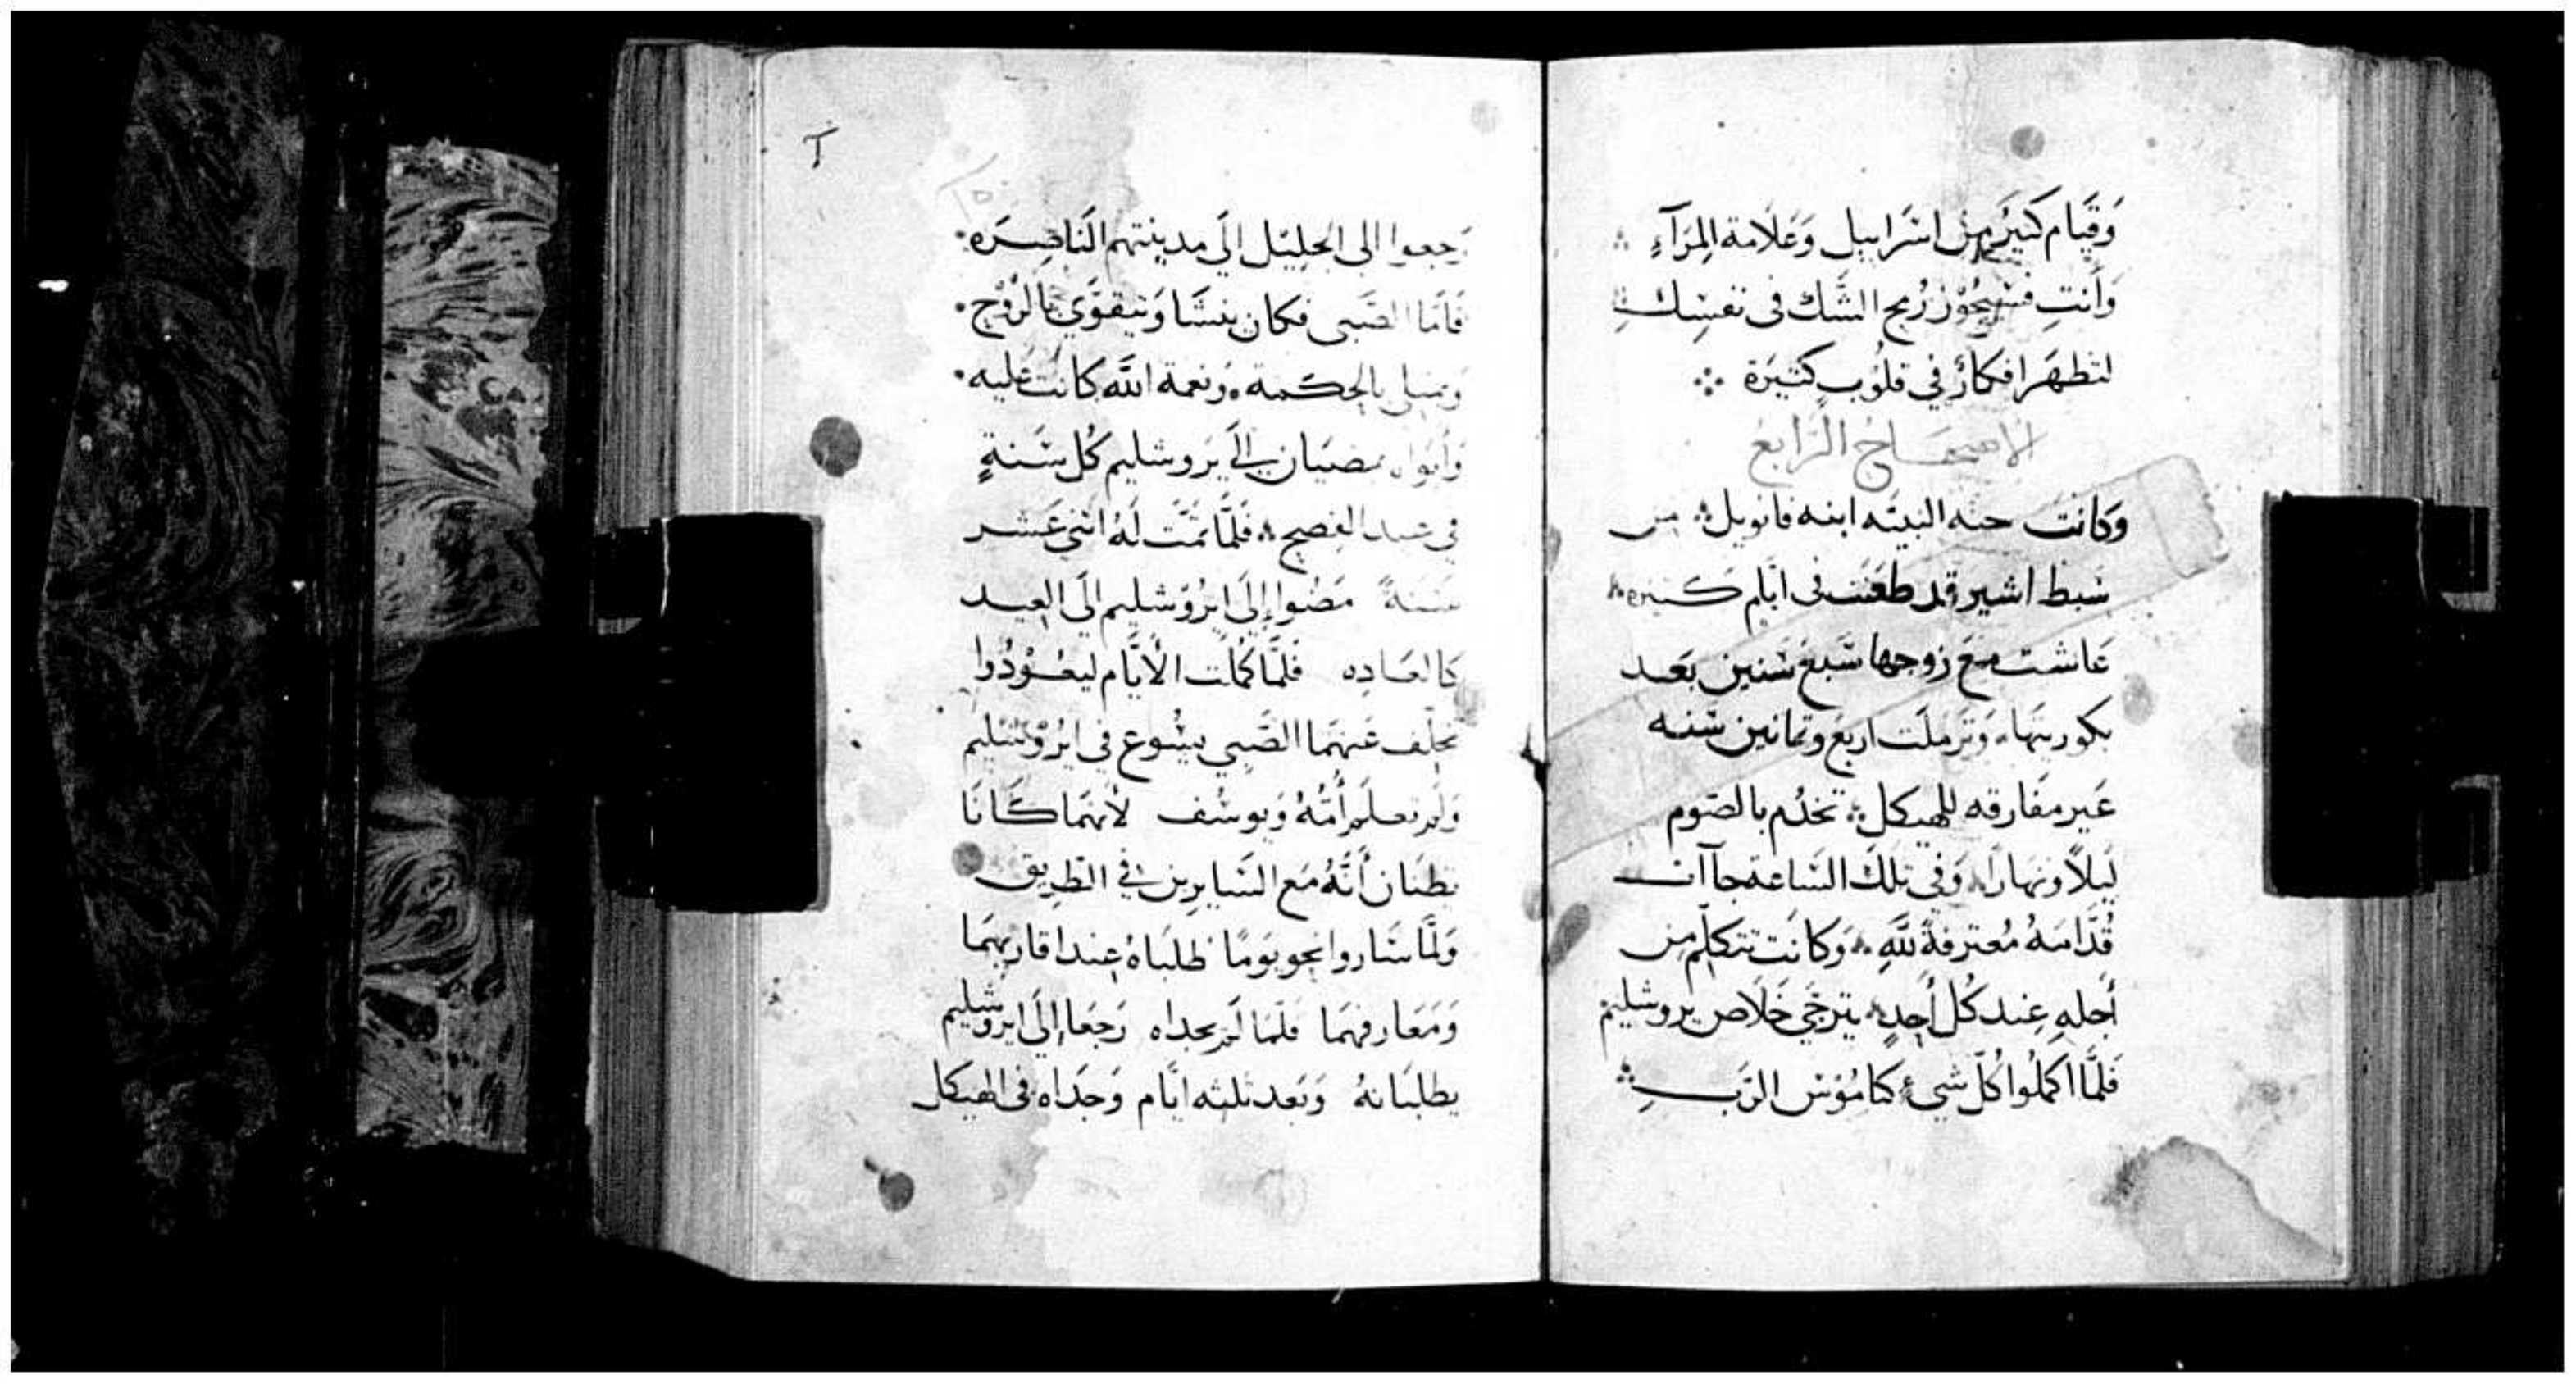 وَقيَام كثيَر من اسَرابيل وَعَلامة المِرَآءِ ؞
وَأنتِ فسَيجُوْز رُمح الشَّك في نفسِك
لتظهَر افكارٌ في قلُوبٍ كثيَرة ؞
الاصحَاحُ الرَّابعُ
وَكانت حنه النبيَه ابنه فانويل ؞ من
سَبط اشير قد طعَنت في ايَّام كثيره ؞
عَاشت مَع زوجها سَبعَ سَنين بَعد
بكوريتهَا ؞ وَترَملَت اربعَ وثمانين سَنه
غَير مفَارقه للهيكل ؞ تخدُم بالصَوم
لَيلاً ونهارًا ؞ وَفي تلكَ السَاعة جاآت
قُدَّامَهُ مُعترفةً للَّهِ ؞ وَكانَت تتكلَّم من
أجلهِ عِند كُل أحدٍ ؞ يَترجَّى خَلاَص يروشليم
فلمَّا اكملُوا كُلّ شيءٍ كنامُوْس الرَبِ ؞
رَجعوا الى الجليْل اليَ مدينتهم النَاصِرَه ؞
فَامَا الصَبى فكان ينشَا وَيتقوَّى بالرُّوْح ؞
وَيمتلى بالحكمة ؞ ونعمة الله كانت عَليه ؞
وَأبَواه يمضيَان إلىَ يَروشليم كُل سَنةٍ
في عيد الفِصح ؞ فَلمَّا تمَّت لَهُ اثنى عَشر
سَنَةً مَضُوا إلىَ ايرُوْشليم الىَ العِيد
كالعَاده فَلمَّا كمُلت الأيَّام ليعُوْدُوا
تخلّف عَنهمَا الصَّبِي يسُوع في ايرُوْشليم
وَلم تعلَم أُمُّهُ وَيوسُف لأنهمَا كَانَا
يظنَان أنَّهُ مَع السَايرين في الطريق
وَلمَّا سَاروا نحو يَومًا طلبَاهُ عِند اقاربهمَا
وَمَعارفهمَا فلمَّا لَم يجداه رَجعَا إلىَ ايروشليم
يطلبَانهُ وَبَعد ثلثه ايَّام وَجَداه في الهيكل